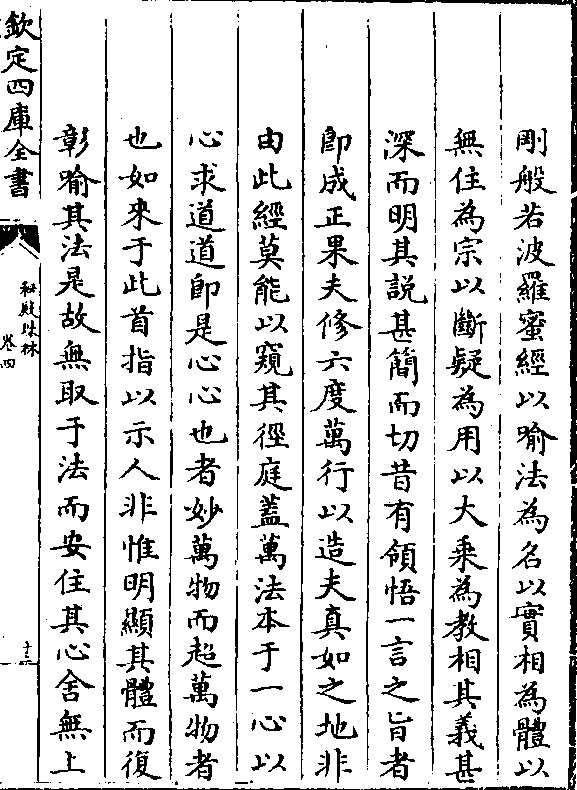 剛般若波羅蜜經以喻法為名以實相為體以
無住為宗以斷疑為用以大乘為教相其義甚
深而明其説甚簡而切昔有領悟一言之旨者
即成正果夫修六度萬行以造夫真如之地非
由此經莫能以窺其徑庭蓋萬法本于一心以
心求道道即是心心也者妙萬物而超萬物者
也如来于此首指以示人非惟明顯其體而復
彰喻其法是故無取于法而安住其心舍無上
欽定四庫全書
秘殿珠林
卷四